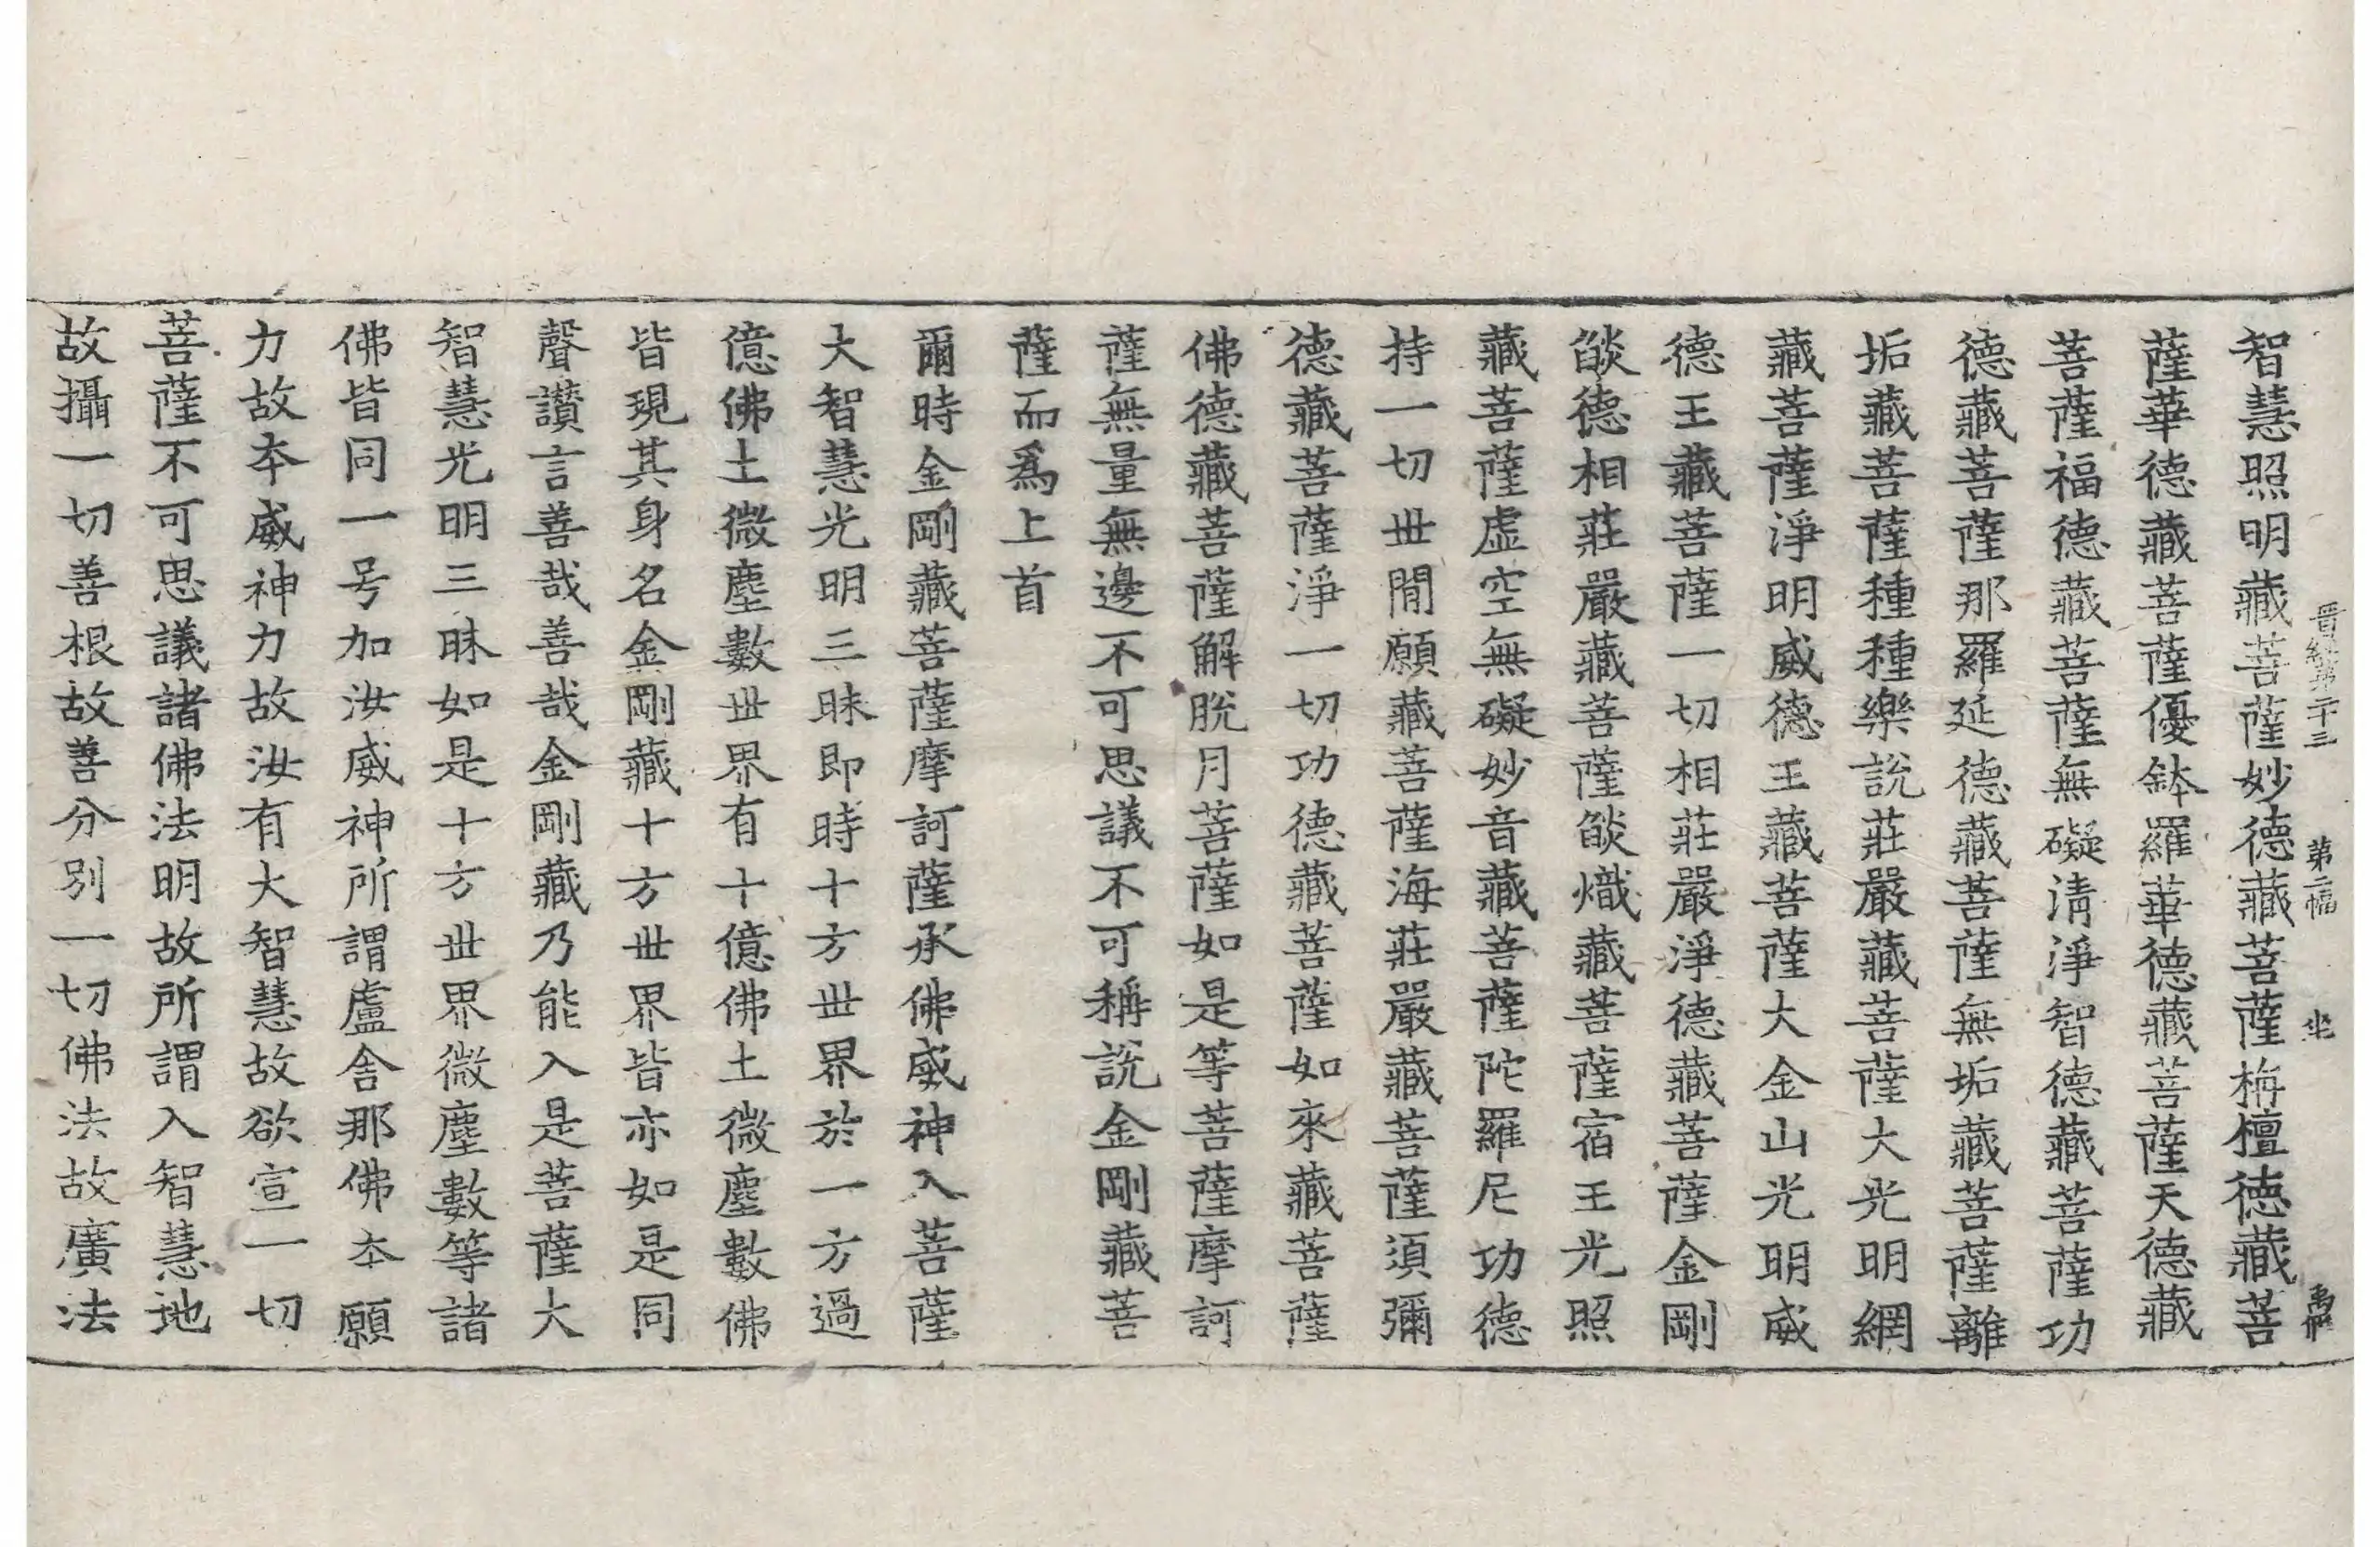 晋經第二十三　第二幅　坐
智慧照明藏菩薩妙德藏菩薩栴檀德藏菩
薩華德藏菩薩優鉢羅華德藏菩薩天德藏
菩薩福德藏菩薩無礙清淨智德藏菩薩功
德藏菩薩那羅延德藏菩薩無垢藏菩薩離
垢藏菩薩種種樂說莊嚴藏菩薩大光明網
藏菩薩淨明威德王藏菩薩大金山光明威
德王藏菩薩一切相莊嚴淨德藏菩薩金剛
燄德相莊嚴藏菩薩燄熾藏菩薩宿王光照
藏菩薩虛空無礙妙音藏菩薩陀羅尼功德
持一切世間願藏菩薩海莊嚴藏菩薩須彌
德藏菩薩淨一切功德藏菩薩如來藏菩薩
佛德藏菩薩解脫月菩薩如是等菩薩摩訶
薩無量無邊不可思議不可稱說金剛藏菩
薩而爲上首
爾時金剛藏菩薩摩訶薩承佛威神入菩薩
大智慧光明三昧即時十方世界於一方過
億佛土微塵數世界有十億佛土微塵數佛
皆現其身名金剛藏十方世界皆亦如是同
聲讃言善哉善哉金剛藏乃能入是菩薩大
智慧光明三昧如是十方世界微塵數等諸
佛皆同一号加汝威神所謂盧舍那佛本願
力故本威神力故汝有大智慧故欲宣一切
菩薩不可思議諸佛法明故所謂入智慧地
故攝一切善根故善分別一切佛法故廣法